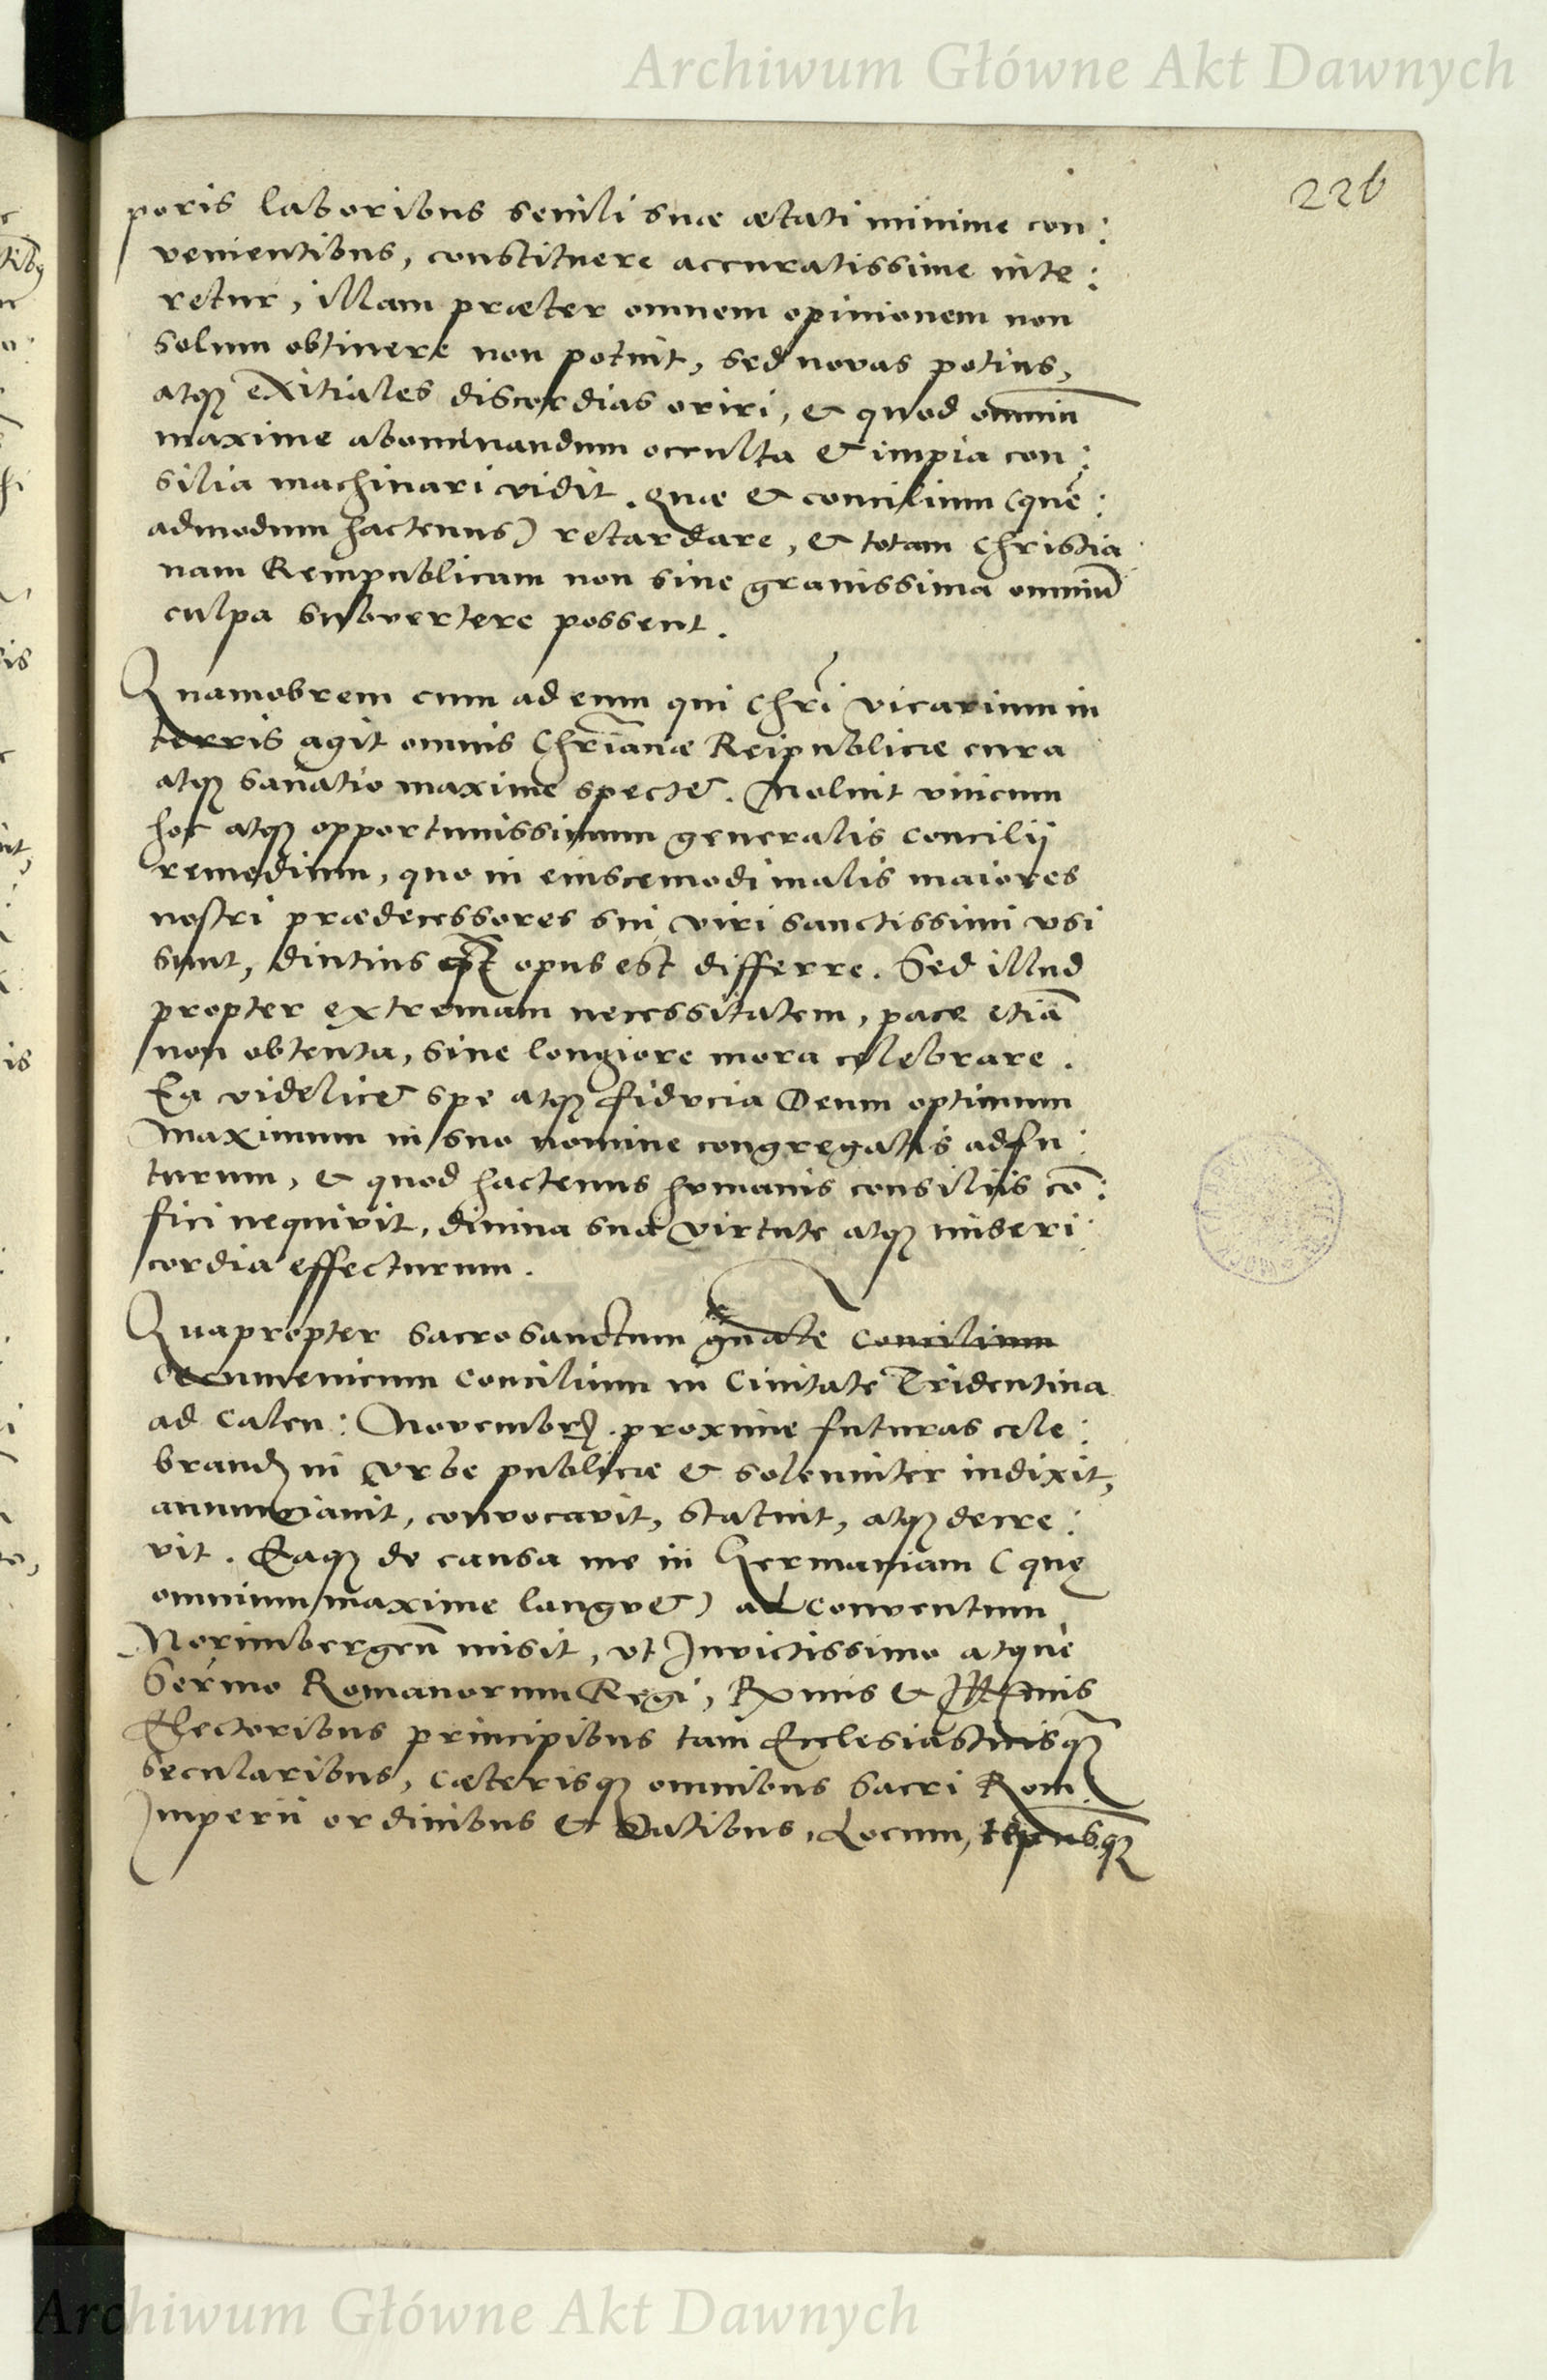 Archiwum Główne Akt Dawnych
226
poris laboribus senili suæ ætati minime con:
venientibus, constituere accuratissime nite:
retur, illam præter omnem opinionem non
solum obtinere non potuit, sed novas potius,
atqȝ exitiales discordias oriri, & quod omniū
maxime abominandum occulta & impia con:
silia machinari vidit. Quæ & concilium (quē:
admodum hactenus) retardare, & totam Christia
nam Rempublicam non sine grauissima omniū
culpa subvertere possent.
Quamobrem cum ad eum qui Chri̅ vicarium in
terris agit omnis Chri̅anæ Reipublicæ cura
atqȝ sanatio maxime spectet. Noluit vnicum
hoc atqȝ opportunissimum generalis concilij
remedium, quo in eiuscemodi malis maiores
nostri prædecessores sui viri sanctissimi vsi
sunt, diutius qȝ̅ opus est differre. Sed illud
propter extremam necessitatem, pace etiā
non obtenta, sine longiore mora celebrare.
Ea videlicet spe atqȝ fiducia Deum optimum
Maximum in suo nomine congregatis adfu:
turum, & quod hactenus humanis consiliis cō:
fici nequivit, diuina sua virtute atqȝ miseri:
cordia effecturum.
Quapropter sacrosanctum gn̅ale Concilium
Oecumenicum Concilium in Ciuitate Tridentina
ad Calen: Novembrȝ. proxime futuras cele:
brandȝ in Vrbe publicæ & solenniter indixit,
annunciauit, convocavit, statuit, atqȝ decre:
vit. Eaqȝ de causa me in Germaniam (quę
omnium maxime languet) ad Conventum
Norimbergen̅ misit, vt Invictissimo atque
Ser̅mo Romanorum Regi, R̅mis & Ill̅mis
Electoribus principibus tam Ecclesiasticis qȝ̅
secularibus, cæterisqȝ omnibus Sacri Rom.
Imperii ordinibus & Statibus, Locum, te̅pusqȝ
Archiwum Główne Akt Dawnych